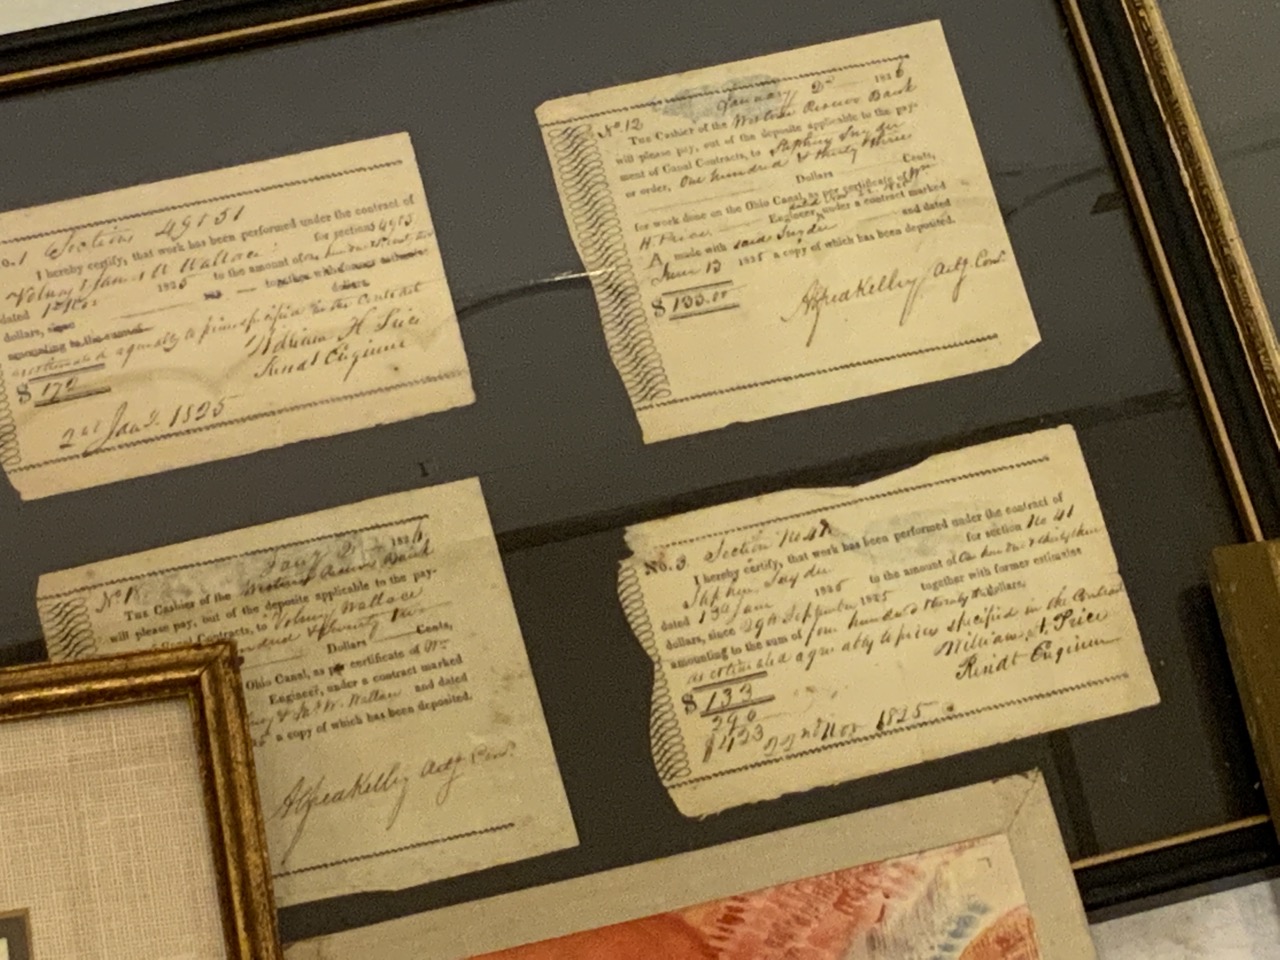 No. 1 Sections 49 & 51
I hereby certify, that work has been performed under the contract of
Volney & James W Wallace for sections 49 & 51
dated 1825 to the amount of
dollars, since together with former estimates
amounting to the sum of dollars,
as estimated agreeably to prices specified in the Contract
$ 170
William H Price
Residt Engineer
2nd Jany. 1825
No. 12 January 2nd 1826
The Cashier of the Western Reserve Bank
will please pay, out of the deposite applicable to the pay-
ment of Canal Contracts, to Stephen Snyder
or order, One hundred & thirty three
Dollars Cents,
for work done on the Ohio Canal, as per certificate of Wm
H. Price Engineer, under a contract marked
A, made with said Snyder and dated
June 13 1825 a copy of which has been deposited.
$ 133.00
Alfred Kelley Actg Comr.
No. 1 Jany 2 1826
The Cashier of the Western Reserve Bank
will please pay, out of the deposite applicable to the pay-
Canal Contracts, to Volney Wallace
Dollars Cents,
Ohio Canal, as per certificate of Wm
Engineer, under a contract marked
& Jas W. Wallace and dated
a copy of which has been deposited.
Alfred Kelley Actg Comr.
No. 3 Section No 41
I hereby certify, that work has been performed under the contract of
Stephen Snyder for section No 41
dated 13 June 1825 to the amount of One hundred & thirty three
dollars, since 29th September 1825 together with former estimates
amounting to the sum of four hundred twenty three dollars,
as estimated agreeably to prices specified in the Contract
$ 133
290
$ 423
William H. Price
Residt Engineer
22nd Nov 1825